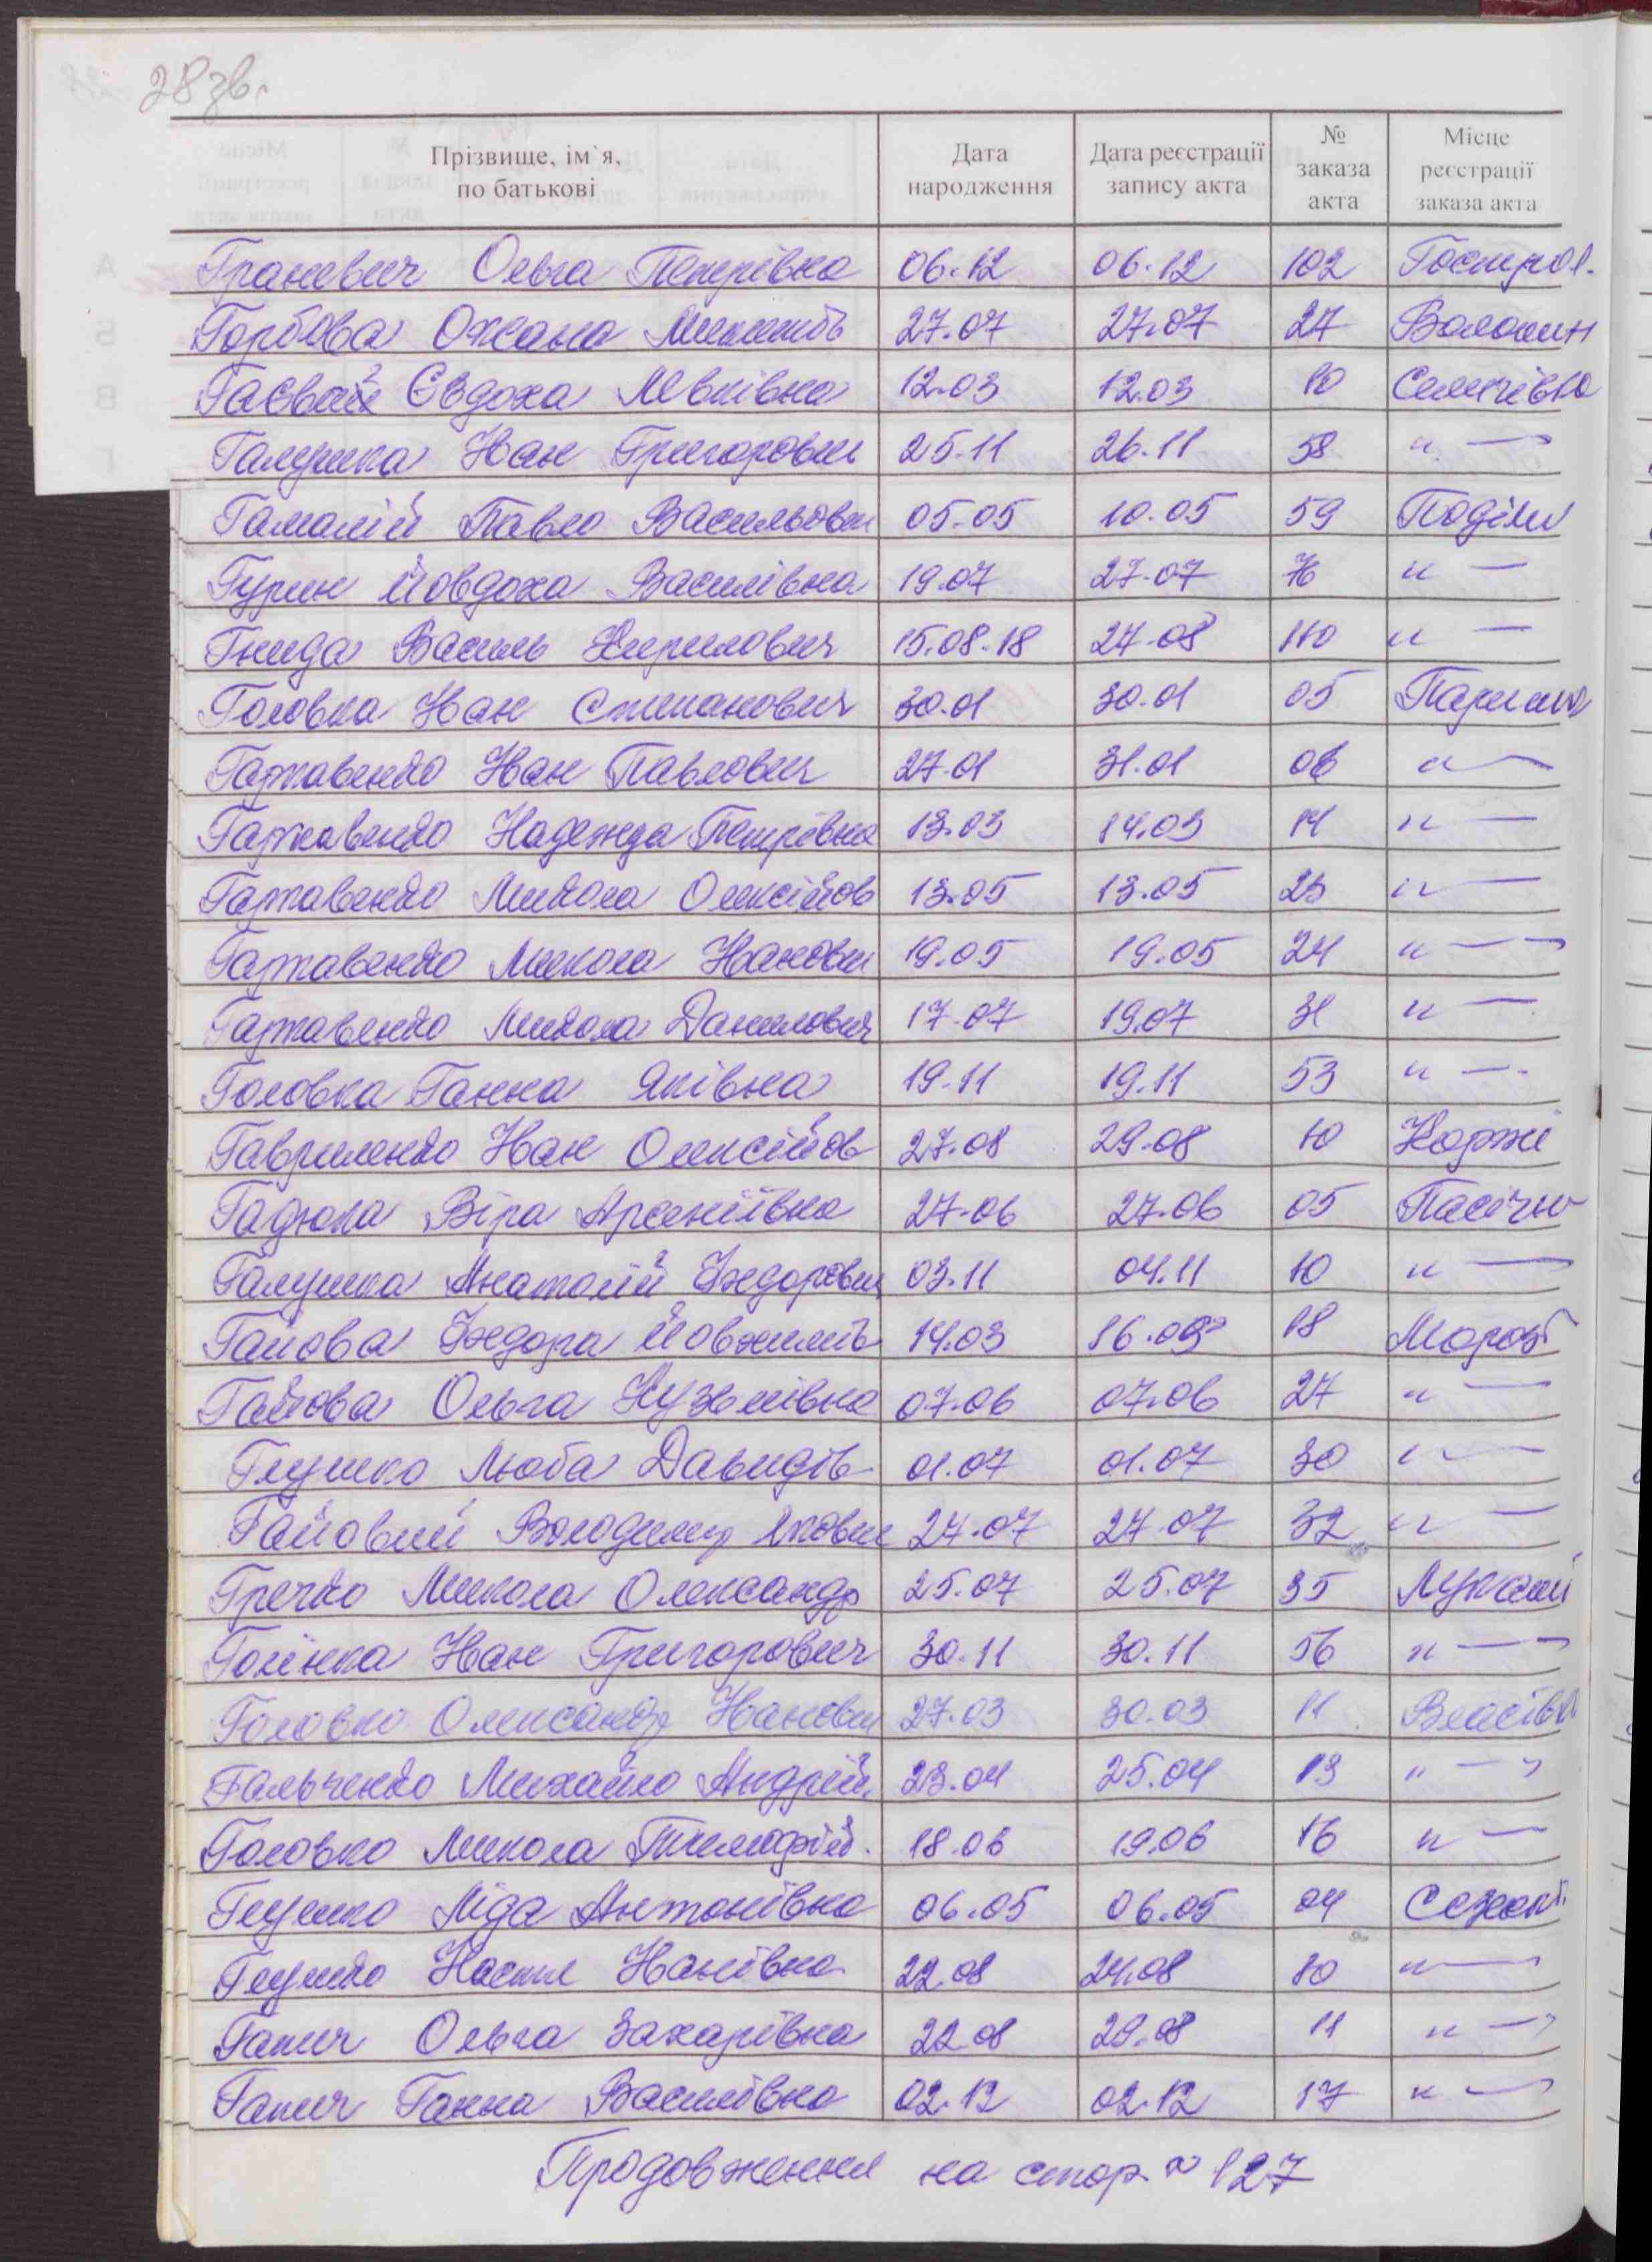 28 зв.
Прізвище, ім`я, по батькові Дата народження Дата реєстрації запису акта № заказа акта Місце реєстрації заказа акта
Граневич Ольга Петрівна 06.12 06.12 102 Гостро1.
Горбова Оксана 27.07 27.07 27 Волошин
Євдоха Левківна 12.03 12.03 10 Семенівка
Галушка Іван Григорович 25.11 26.11 58 " —
Гамалій Павло Васильович 05.05 10.05 59 Поділи
Гурин Йовдоха Василівна 19.07 27.07 76 " —
Гнида Василь Кирилович 15.08.18 27.08 110 " —
Головка Іван Степанович 30.01 30.01 05
Гаркавенко Іван Павлович 27.01 31.01 06 " —
Гаркавенко Надежда Петрівна 13.03 14.03 14 " —
Гаркавенко Микола Олексійов 13.05 13.05 23 " —
Гаркавенко Микола Іванови 19.05 19.05 24 " —
Гаркавенко Микола Данилович 17.07 19.07 31 " —
Головка Ганна Яківна 19.11 19.11 53 " —
Гавриленко Іван Олексійов 27.08 29.08 10 Коржі
Гадюка Віра Арсеніївна 27.06 27.06 05 Пасічн
Галушка Анатолій Федорович 03.11 04.11 10 " —
Гайова Федора 14.03 16.03 18 Мороз
Гайова Ольга Кузьмівна 07.06 07.06 27 " —
Глушко Люба Давидів 01.07 01.07 30 " —
Гайовий Володимир Якови 27.07 27.07 32 " —
Гречко Микола Олександр 25.07 25.07 35
Іван Григорович 30.11 30.11 56 " —
Головко Олександр Іванови 27.03 30.03 11 Власівк
Гальченко Михайло Андрій. 23.04 25.04 13 " —
Головко Микола Тимофій. 18.06 19.06 16 " —
Глушко Ліда Антонівна 06.05 06.05 04
Глушко Настя Іванівна 22.08 24.08 10 " —
Гапич Ольга Захарівна 22.08 29.08 11 " —
Гапич Ганна Василівна 02.12 02.12 17 " —
Продовження на стор. № 127